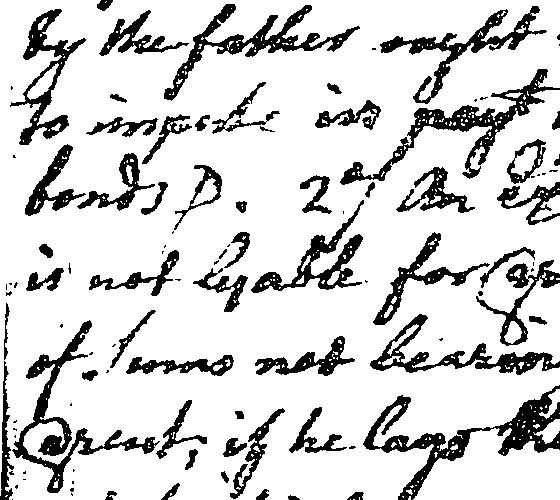 by the father ought
to impute in payt
bonds p. 2d/ An Ex
is not lyable for
of sums not bearin
@rent, if he lays the